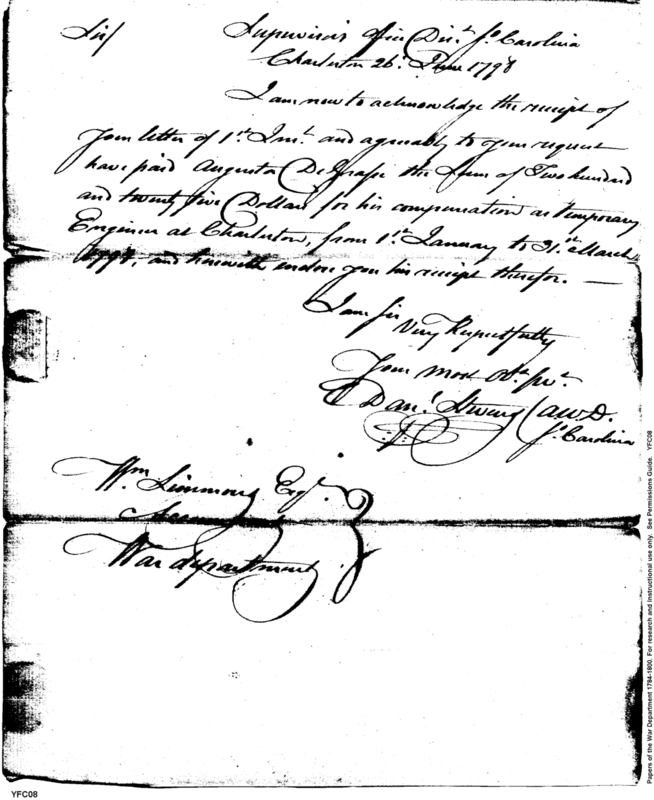 Sir/ Supervisor's Office Dist. So. Carolina
Charleston 26th June 1798
I am now to acknowledge the receipt of
Your letter of 1st. Inst. and agreeably to your request
have paid Augustus DeGrasse the Sum of Two hundred
and twenty five Dollars for his compensation as temporary
Engineer at Charleston, from 1st. January to 31st. March
1798, and herewith enclose you his receipt therefor. —
I am Sir
Very Respectfully
Your most Obt. Svt.
Danl. Stevens AWD.
So. Carolina
Wm. Simmons Esqr.
Accountant
War department
Papers of the War Department 1784-1800. For research and instructional use only. See Permissions Guide. YFC08
YFC08